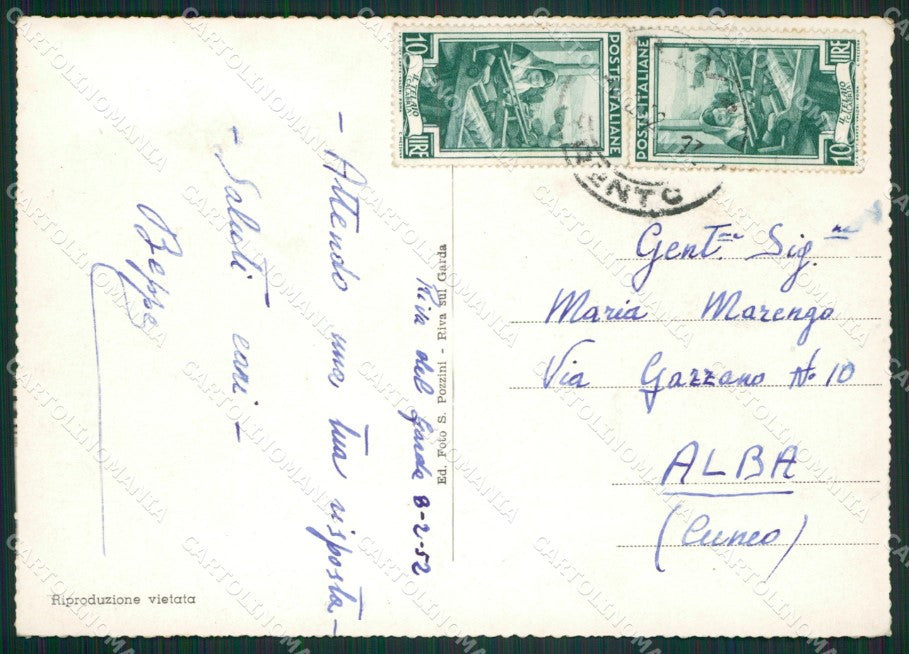 10
LIRE
IL TELAIO
CALABRIA
POSTE ITALIANE
POSTE ITALIANE
LIRE
10
IL TELAIO
TRENTO
Riva del Garda 8-2-52
- Attendo una tua risposta -
- Saluti cari -
Beppe
Ed. Foto S. Pozzini - Riva sul Garda
Gent.ma Sig.na
Maria Marengo
Via Gazzano N° 10
ALBA
(Cuneo)
Riproduzione vietata
CARTOLINOMANIA